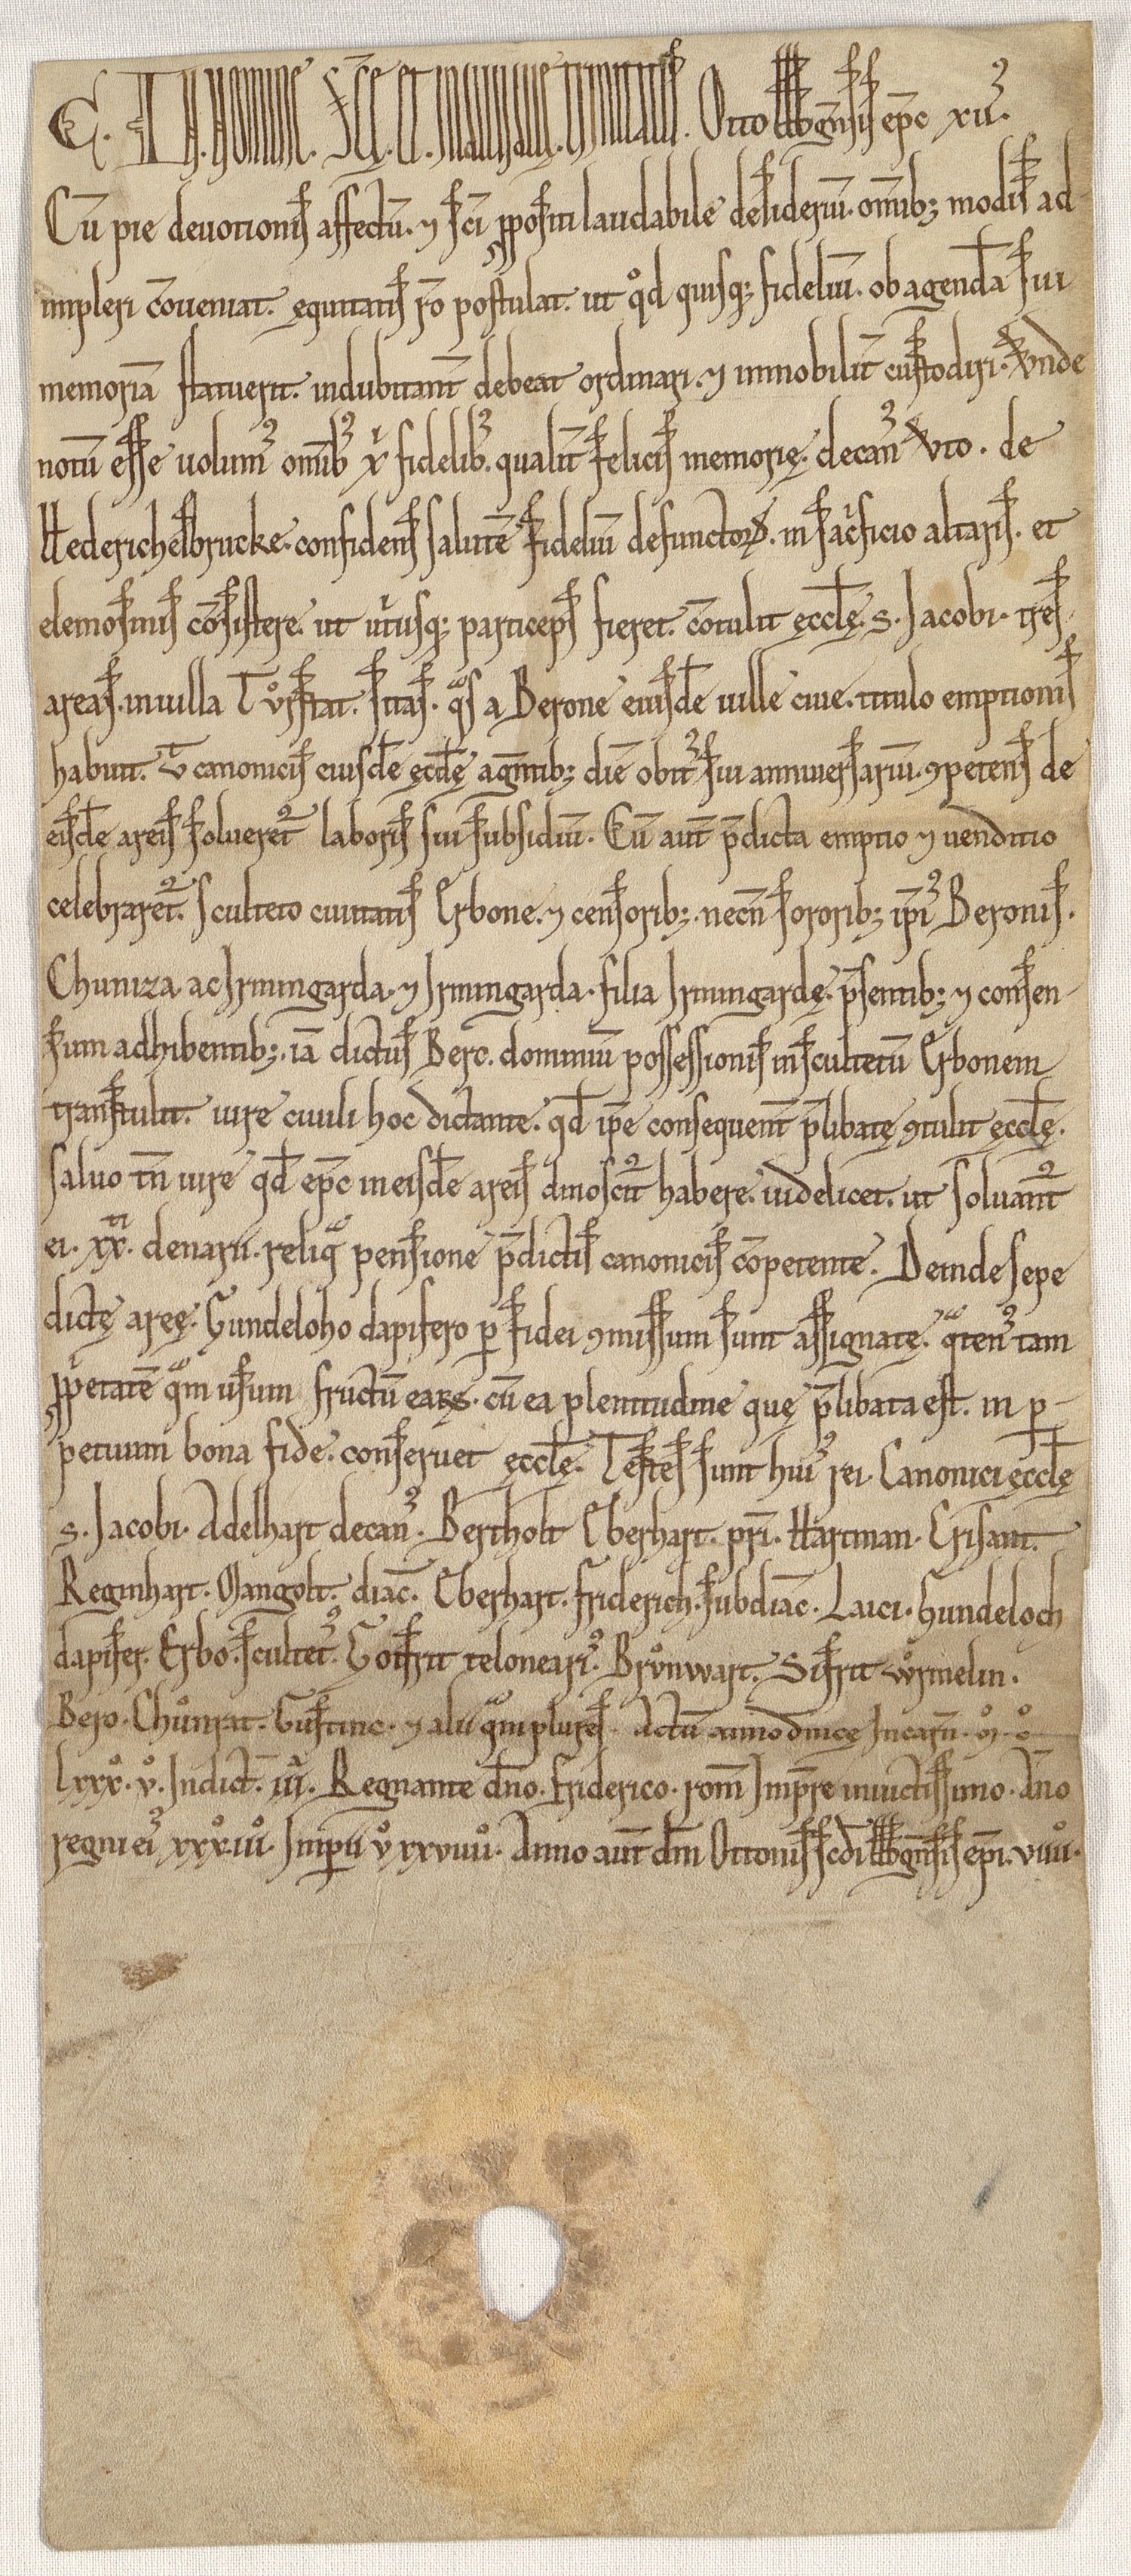 C. IN. NOMINE. SCĒ. ET. INDIVIDUE. TRINITATIS. Otto bbgnsis epc xiiꝰ.
Cū pie deuotionis affectū. ⁊ sci ppositi laudabile desideriū. omib; modis ad-
impleri cōueniat. ęquitatis ro postulat. ut qd quisq; fideliū. ob agenda sui
memoriā statuerit. indubitant debeat ordinari. ⁊ immobilit custodiri. Vnde
notū esse uolumꝰ omibꝰ x fidelibꝰ. qualit felicis memorię. decanꝰ Vto. de
Hederichesbrucke. confidens salutē fideliū defunctoꝝ. in sacficio altaris. et
elemosinis cōsistere. ut utiusq; particeps fieret. cōtulit ęccłę. s. Jacobi. tres
areas. in uilla Tvͦrstat. sitas. qs a Berone eiusde uille ciue. titulo emptionis
habuit. Vt canonicis eiusde ęccłę agntib; diē obitꝰ sui anniuersariū. ꝯpetens de
eisde areis solueret laboris sui subsidiū. Cū aut p̄dicta emptio ⁊ uenditio
celebraret. Sculteto ciuitatis Erbone. ⁊ censorib;. necn sororib; ipiꝰ Beronis.
Chuniza. ac Irmingarda. ⁊ Irmingarda. filia Irmingardę. p̄sentib; ⁊ consen-
sum adhibentib;. iā dictus Bero. dominiū possessionis in scultetū Erbonem
transtulit. iure ciuili hoc dictante. qd ipe consequent p̄libatę ꝯtulit ęccłę.
saluo tn iure qd epc in eisde areis dinoscit habere. uidelicet. ut soluant
ei. xx. denarii. reliq pensione p̄dictis canonicis cōpetente. Deinde sepe
dictę aręę. Gundeloho dapifero p fidei ꝯmissum sunt assignatę. qtenꝰ tam
ppetatē qm usum fructū eaꝝ. cū ea plenitudine que p̄libata est. in p-
petuum bona fide. conseruet ęccłę. Testes sunt huiꝰ rei. Canonici ęccłę
s. Jacobi. Adelhart decanꝰ. Bertholt Eberhart. pri. Hartman. Crisant.
Reginhart. Mangolt. diac. Eberhart. Friderich. subdiac. Laici. Gundeloch
dapifer. Erbo. scultetꝰ. Gotfrit teloneariꝰ. Brvͦnwart. Sifrit wͦrmelin.
Bero. Chuͦnrat. Gustinc. ⁊ alii qmplures. Actū anno dnicę Incarn. Mͦ. Cͦ.
Lxxxͦ. vͦ. Indict. iii. Regnante dno. Friderico. rom Impre inuictissimo. Anno
regni eiꝰ xxxiiiͦ. Imperii vͦ xxviiiiͦ. Anno aut dni Ottonis scdi bbgnsis epi. viiiiͦ.